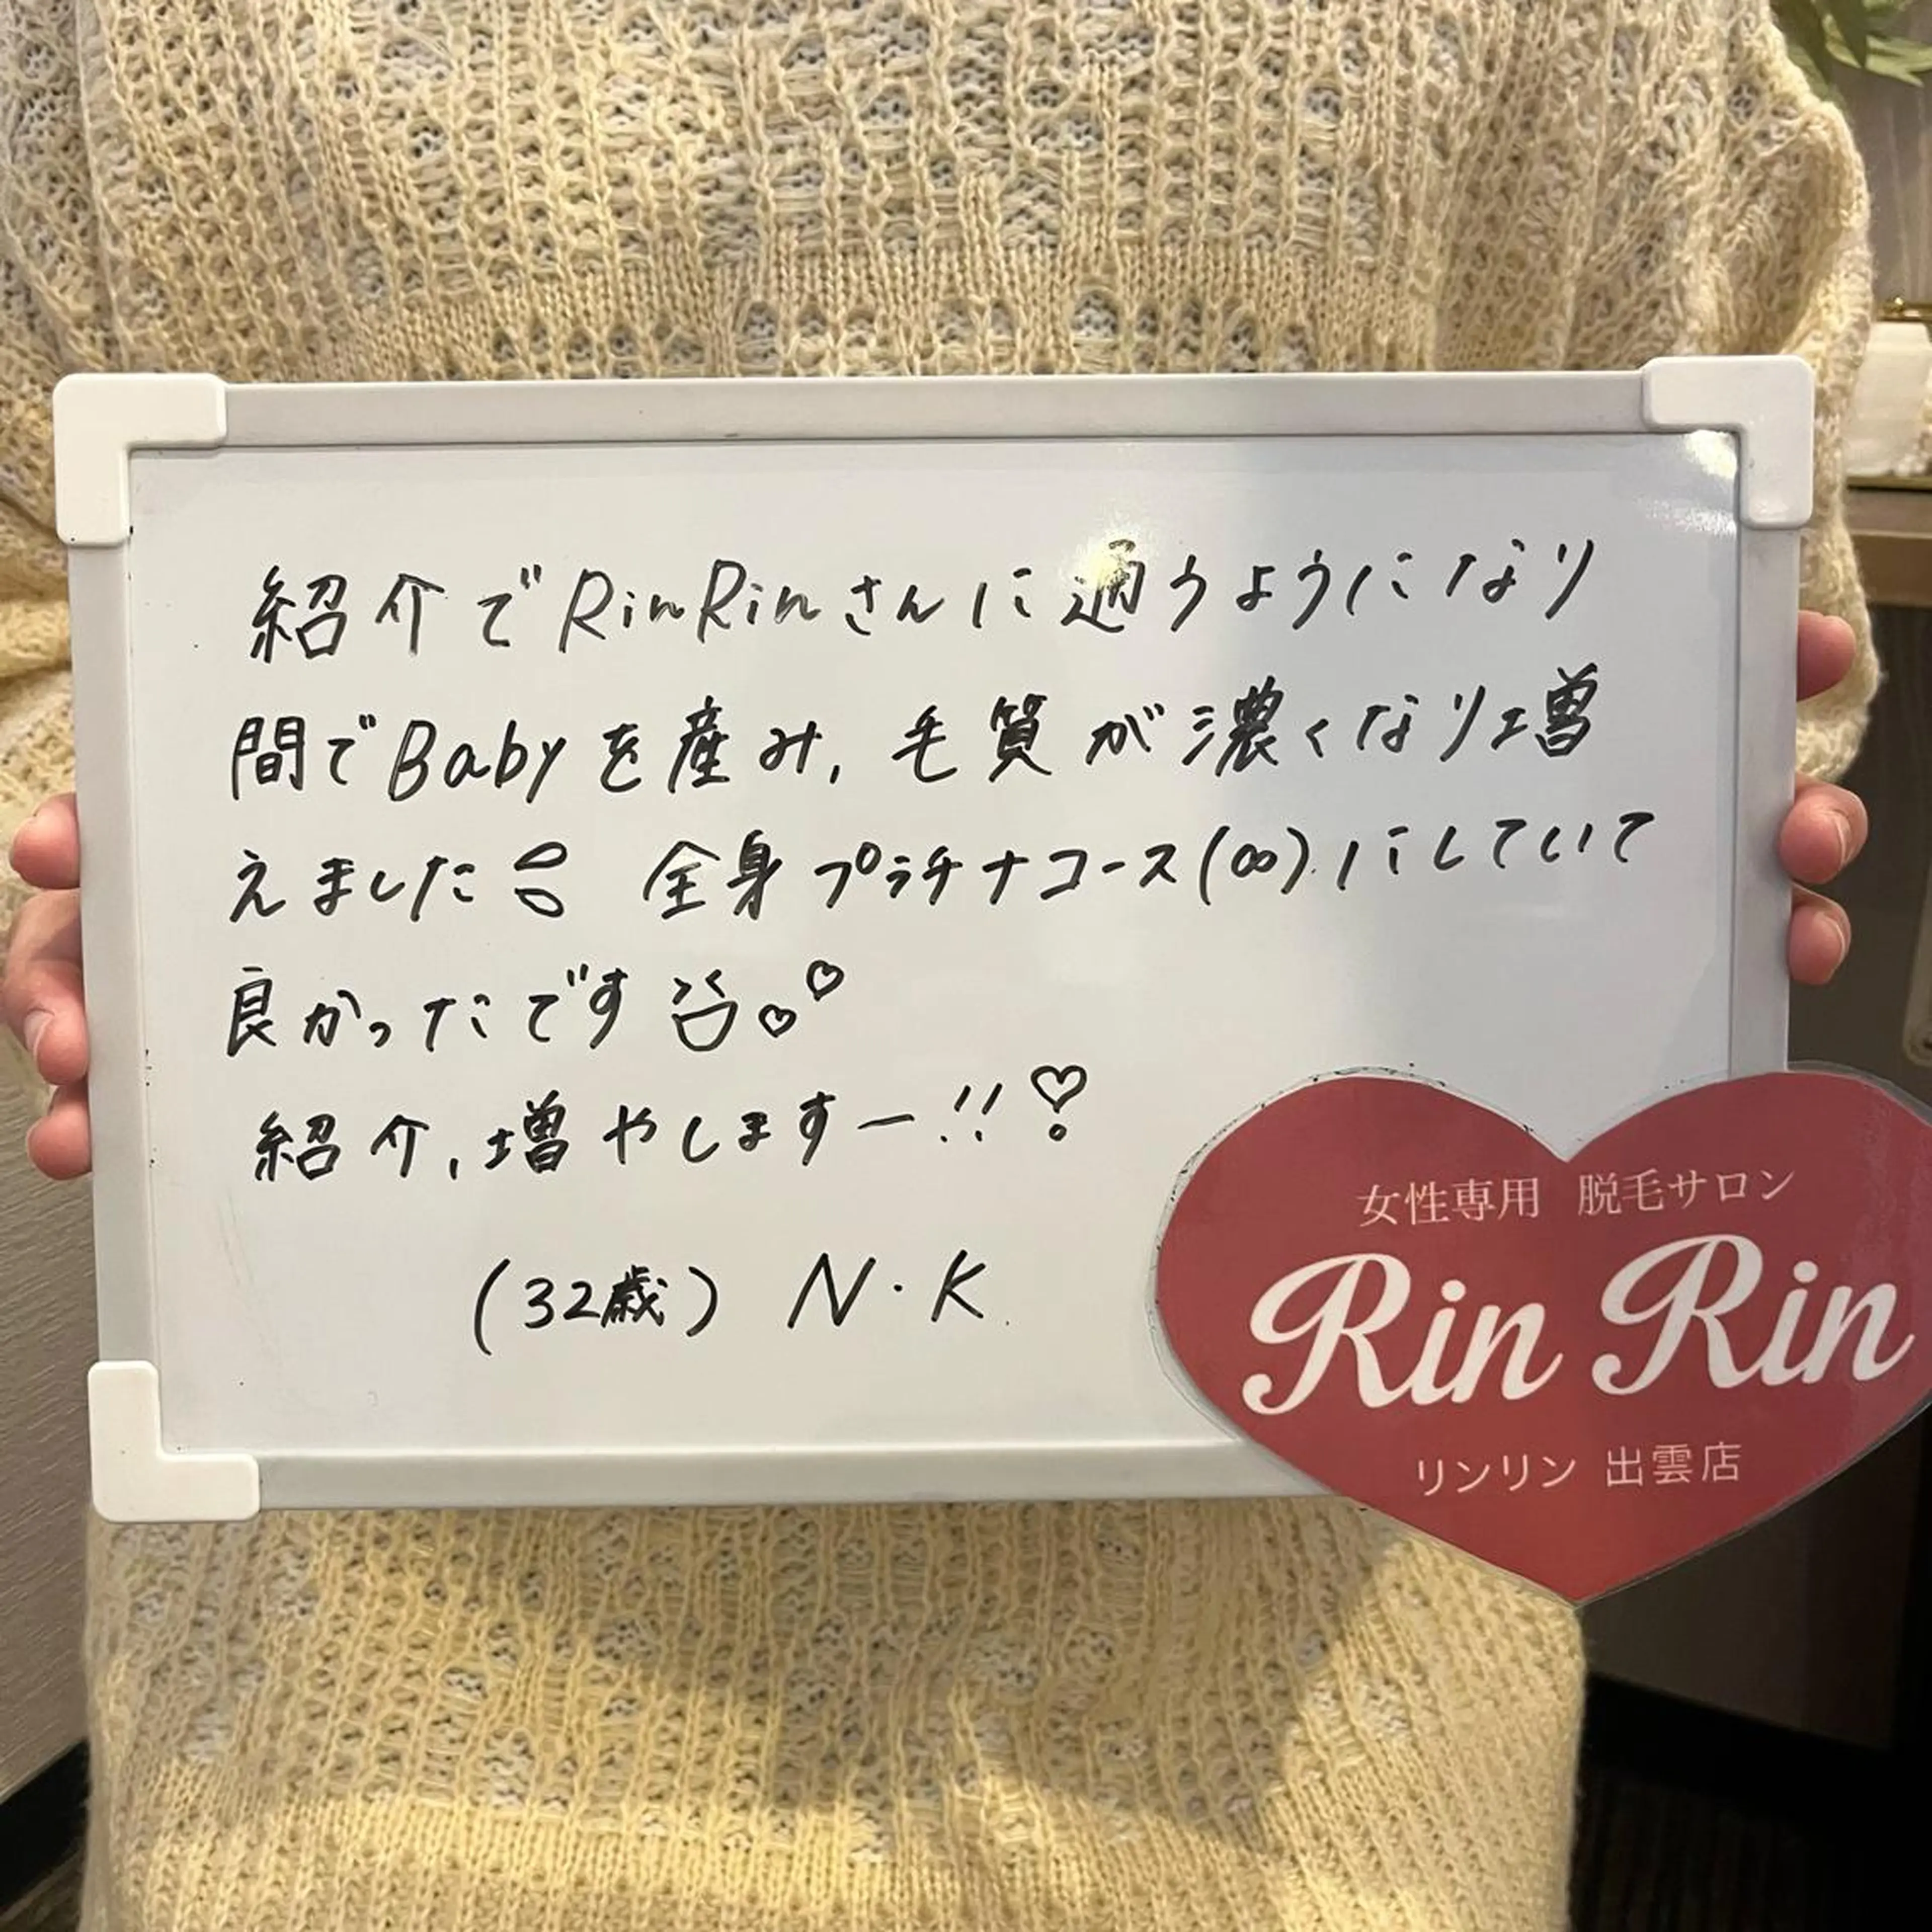 紹介でRinRinさんに通うようになり
間でBabyを産み、毛質が濃くなり増
えました 全身プラチナコース(∞)にしていて
良かったです♡♡
紹介、増やしますー!!♡
(32歳) N・K
女性専用 脱毛サロン
Rin Rin
リンリン 出雲店